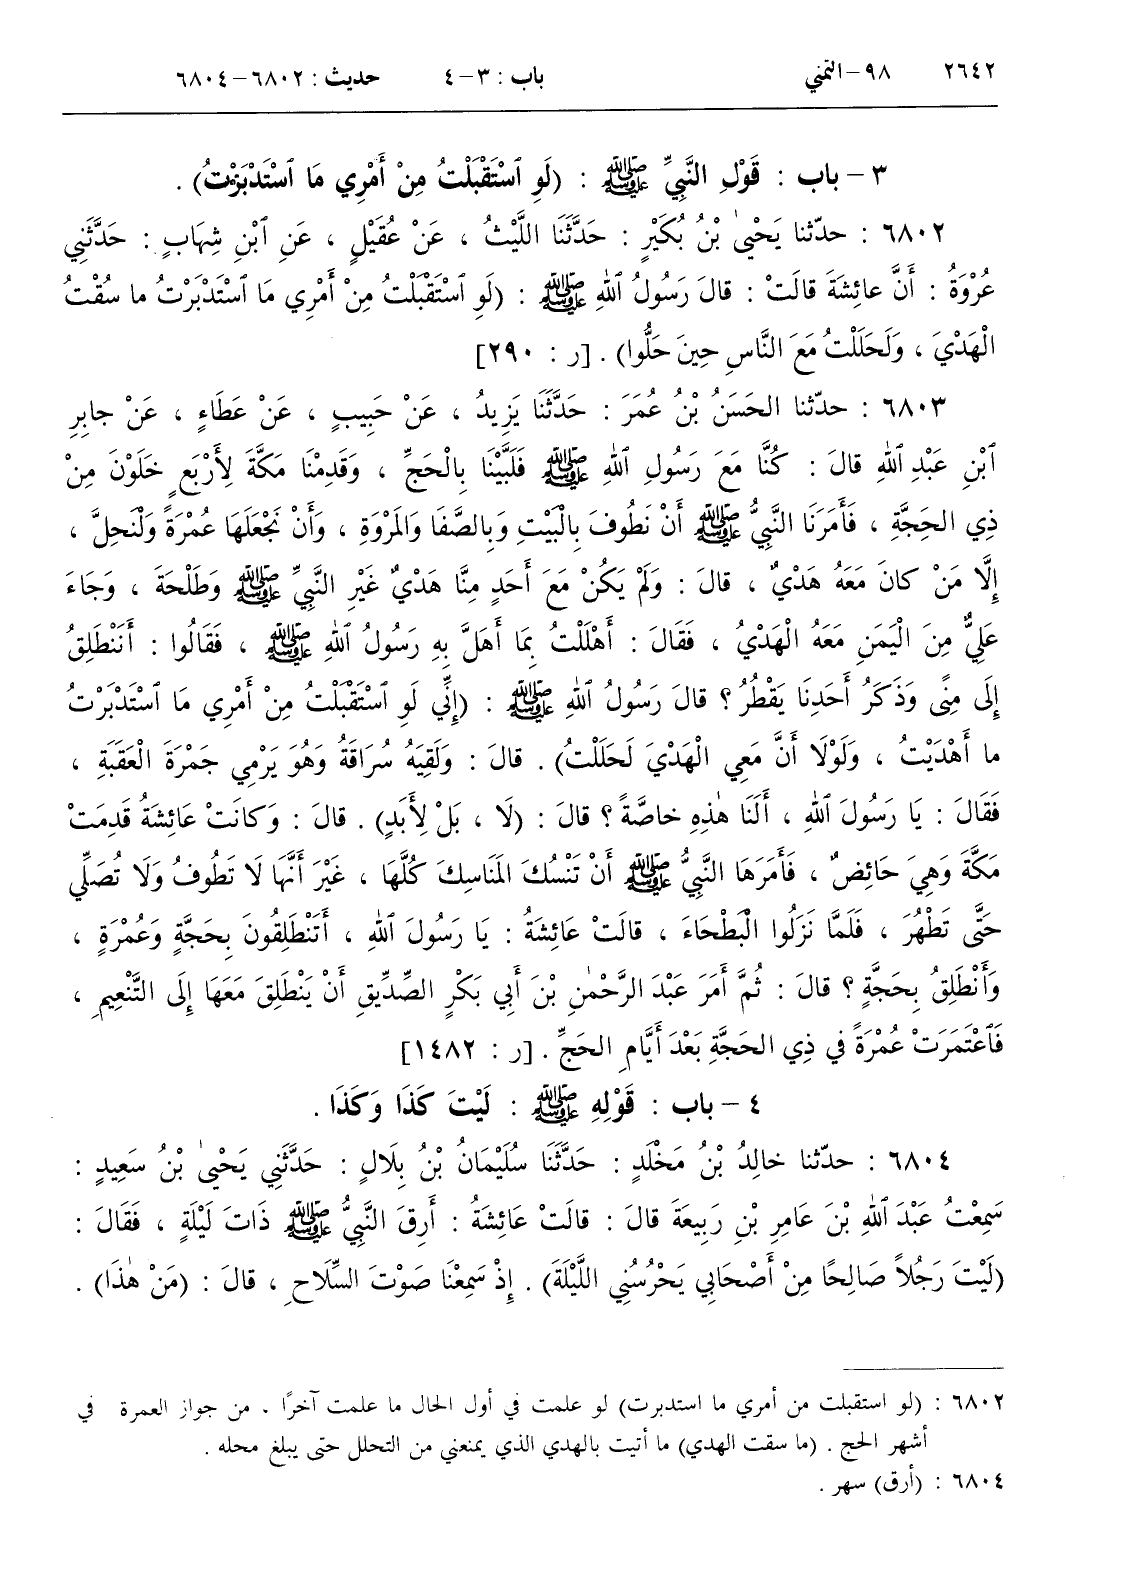 ٢٦٤٢ ٩٨-التمني باب : ٣-٤ حديث : ٦٨٠٢-٦٨٠٤
٣ - باب : قَوْلِ النَّبِيِّ ﷺ : (لَوِ ٱسْتَقْبَلْتُ مِنْ أَمْرِي مَا ٱسْتَدْبَرْتُ) .
٦٨٠٢ : حدّثنا يَحْيىٰ بْنُ بُكَيْرٍ : حَدَّثَنَا اللَّيْثُ ، عَنْ عُقَيْلٍ ، عَنِ ٱبْنِ شِهَابٍ : حَدَّثَنِي
عُرْوَةُ : أَنَّ عائِشَةَ قالَتْ : قالَ رَسُولُ ٱللهِ ﷺ : (لَوِ ٱسْتَقْبَلْتُ مِنْ أَمْرِي مَا ٱسْتَدْبَرْتُ ما سُقْتُ
الْهَدْيَ ، وَلَحَلَلْتُ مَعَ النَّاسِ حِينَ حَلُّوا) . [ر : ٢٩٠]
٦٨٠٣ : حدّثنا الحَسَنُ بْنُ عُمَرَ : حَدَّثَنَا يَزِيدُ ، عَنْ حَبِيبٍ ، عَنْ عَطَاءٍ ، عَنْ جابِرِ
ٱبْنِ عَبْدِ ٱللهِ قالَ : كُنَّا مَعَ رَسُولِ ٱللهِ ﷺ فَلَبَّيْنَا بِالْحَجِّ ، وَقَدِمْنَا مَكَّةَ لِأَرْبَعٍ خَلَوْنَ مِنْ
ذِي الحَجَّةِ ، فَأَمَرَنَا النَّبِيُّ ﷺ أَنْ نَطُوفَ بِالْبَيْتِ وَبِالصَّفَا وَالمَرْوَةِ ، وَأَنْ نَجْعَلَهَا عُمْرَةً وَلْنَحِلَّ ،
إِلَّا مَنْ كانَ مَعَهُ هَدْيٌ ، قالَ : وَلَمْ يَكُنْ مَعَ أَحَدٍ مِنَّا هَدْيٌ غَيْرِ النَّبِيِّ ﷺ وَطَلْحَةَ ، وَجَاءَ
عَلِيٌّ مِنَ الْيَمَنِ مَعَهُ الْهَدْيُ ، فَقَالَ : أَهْلَلْتُ بِمَا أَهَلَّ بِهِ رَسُولُ ٱللهِ ﷺ ، فَقَالُوا : أَنَنْطَلِقُ
إِلَى مِنًى وَذَكَرُ أَحَدِنَا يَقْطُرُ ؟ قالَ رَسُولُ ٱللهِ ﷺ : (إِنِّي لَوِ ٱسْتَقْبَلْتُ مِنْ أَمْرِي مَا ٱسْتَدْبَرْتُ
ما أَهْدَيْتُ ، وَلَوْلَا أَنَّ مَعِي الْهَدْيَ لَحَلَلْتُ) . قالَ : وَلَقِيَهُ سُرَاقَةُ وَهُوَ يَرْمِي جَمْرَةَ الْعَقَبَةِ ،
فَقَالَ : يَا رَسُولَ ٱللهِ ، أَلَنَا هٰذِهِ خاصَّةً ؟ قالَ : (لَا ، بَلْ لِأَبَدٍ) . قالَ : وَكانَتْ عَائِشَةُ قَدِمَتْ
مَكَّةَ وَهِيَ حَائِضٌ ، فَأَمَرَهَا النَّبِيُّ ﷺ أَنْ تَنْسُكَ المَنَاسِكَ كُلَّهَا ، غَيْرَ أَنَّهَا لَا تَطُوفُ وَلَا تُصَلِّي
حَتَّى تَطْهُرَ ، فَلَمَّا نَزَلُوا الْبَطْحَاءَ ، قالَتْ عَائِشَةُ : يَا رَسُولَ ٱللهِ ، أَتَنْطَلِقُونَ بِحَجَّةٍ وَعُمْرَةٍ ،
وَأَنْطَلِقُ بِحَجَّةٍ ؟ قالَ : ثُمَّ أَمَرَ عَبْدَ الرَّحْمٰنِ بْنَ أَبِي بَكْرٍ الصِّدِّيقِ أَنْ يَنْطَلِقَ مَعَهَا إِلَى التَّنْعِيمِ ،
فَٱعْتَمَرَتْ عُمْرَةً في ذِي الحَجَّةِ بَعْدَ أَيَّامِ الحَجِّ . [ر : ١٤٨٢]
٤ - باب : قَوْلِهِ ﷺ : لَيْتَ كَذَا وَكَذَا .
٦٨٠٤ : حدّثنا خالِدُ بْنُ مَخْلَدٍ : حَدَّثَنَا سُلَيْمَانُ بْنُ بِلَالٍ : حَدَّثَنِي يَحْيىٰ بْنُ سَعِيدٍ :
سَمِعْتُ عَبْدَ ٱللهِ بْنَ عَامِرِ بْنِ رَبِيعَةَ قالَ : قالَتْ عَائِشَةُ : أَرِقَ النَّبِيُّ ﷺ ذَاتَ لَيْلَةٍ ، فَقَالَ :
(لَيْتَ رَجُلاً صَالِحًا مِنْ أَصْحَابِي يَحْرُسُنِي اللَّيْلَةَ) . إِذْ سَمِعْنَا صَوْتَ السِّلَاحِ ، قالَ : (مَنْ هٰذَا) .
٦٨٠٢ : (لو استقبلت من أمري ما استدبرت) لو علمت في أول الحال ما علمت آخرًا . من جواز العمرة في
أشهر الحج . (ما سقت الهدي) ما أتيت بالهدي الذي يمنعني من التحلل حتى يبلغ محله .
٦٨٠٤ : (أرق) سهر .